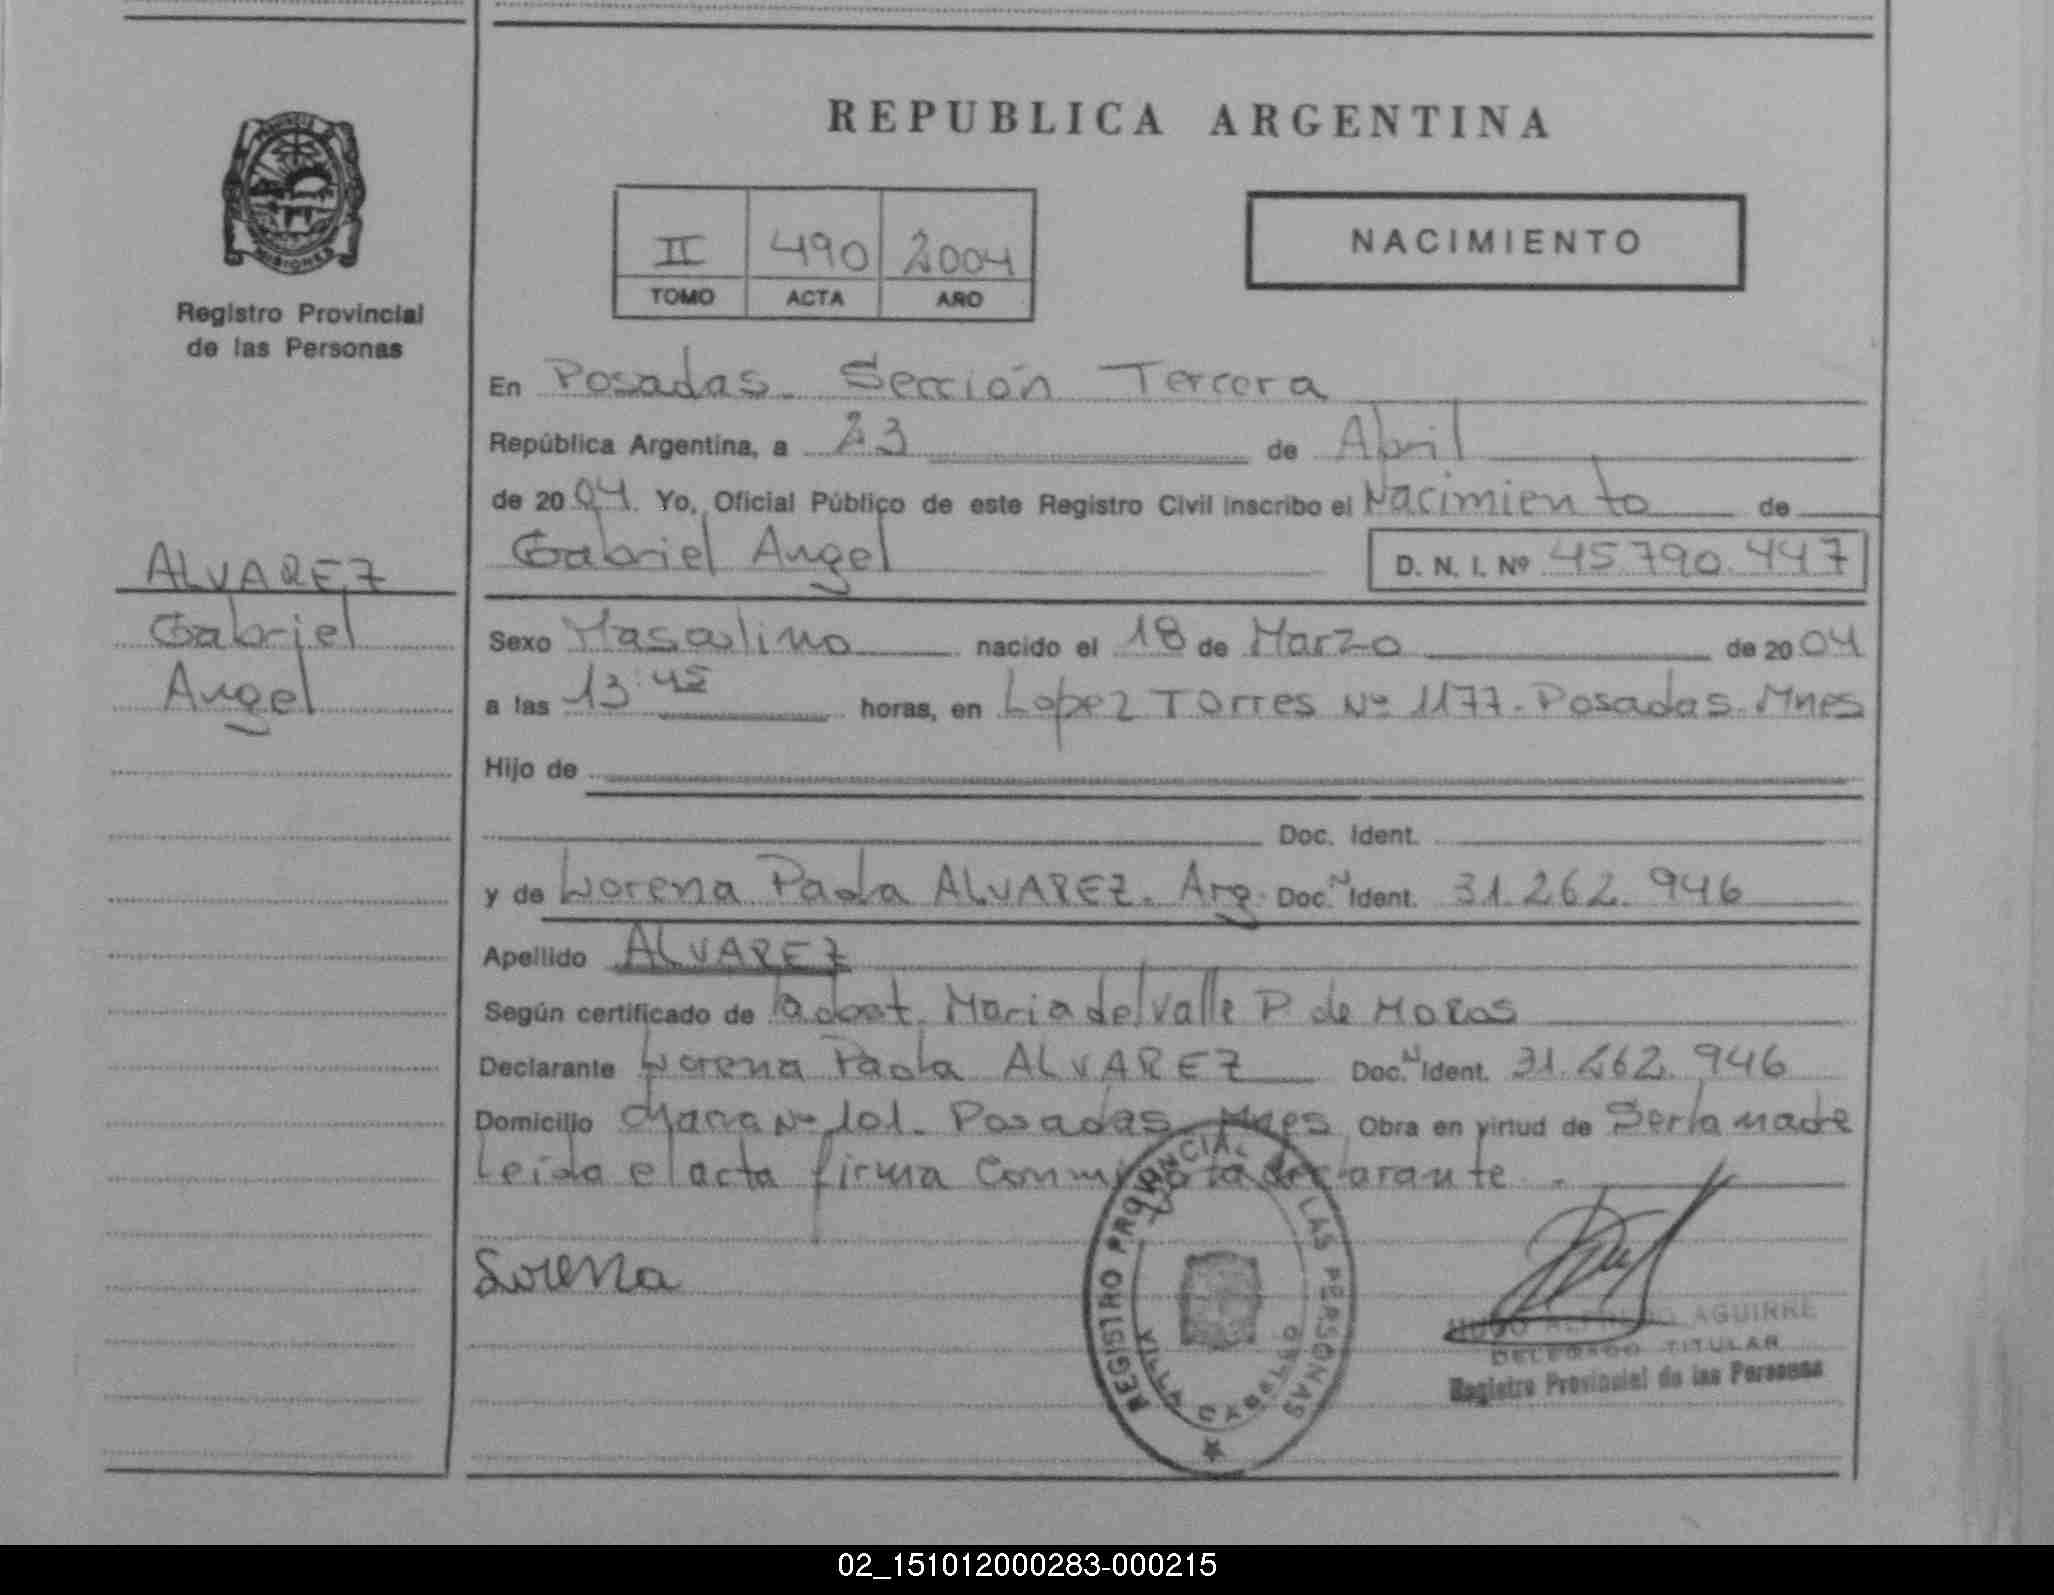 REPUBLICA ARGENTINA
MISIONES
Registro Provincial
de las Personas
II 490 2004
TOMO ACTA AÑO
NACIMIENTO
En Posadas. Sección Tercera
República Argentina, a 23 de Abril
de 2004. Yo, Oficial Público de este Registro Civil inscribo el Nacimiento de
Gabriel Angel D. N. I. Nº 45.790.447
ALVAREZ
Gabriel
Angel
Sexo Masculino nacido el 18 de Marzo de 2004
a las 13:45 horas, en Lopez Torres Nº 1177. Posadas. Mnes
Hijo de
Doc. Ident.
y de Lorena Paola ALVAREZ. Arg. Doc. N Ident. 31.262.946
Apellido ALVAREZ
Según certificado de la obst. Maria del Valle P. de Moras
Declarante Lorena Paola ALVAREZ Doc. N Ident. 31.262.946
Domicilio Chacra Nº 101. Posadas. Mnes Obra en virtud de Ser la madre
Leida el acta firma conmigo la declarante.
Lorena
REGISTRO PROVINCIAL LAS PERSONAS
VILLA CABELLO
HUGO AGUIRRE
DELEGADO TITULAR
Registro Provincial de las Personas
02_151012000283-000215